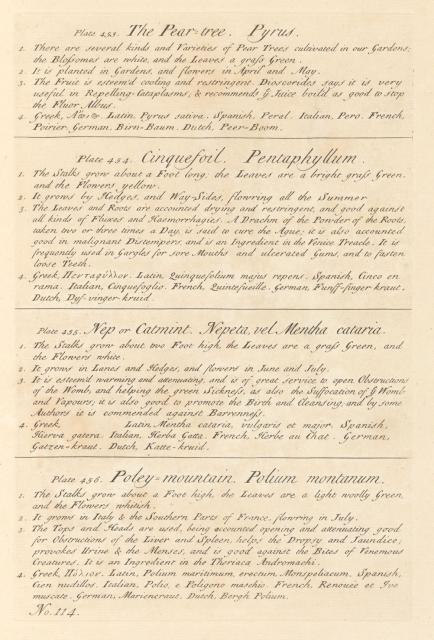 Plate 453. The Pear=tree. Pyrus.
1. There are several kinds and Varieties of Pear Trees cultivated in our Gardens;
the Blossomes are white, and the Leaves a grass Green.
2. It is planted in Gardens, and flowers in April and May.
3. The Fruit is esteem'd cooling and restringent. Dioscorides says it is very
useful in Repelling-Cataplasms, & recommends ẙ Juice boild as good to stop
the Fluor Albus.
4. Greek, Latin, Pyrus sativa. Spanish, Peral. Italian, Pero. French,
Poirier. German, Birn-Baum. Dutch, Peer-Boom.
Plate 454. Cinquefoil. Pentaphyllum.
1. The Stalks grow about a Foot long, the Leaves are a bright grass Green,
and the Flowers yellow.
2. It grows by Hedges, and Way-Sides, flowring all the Summer
3. The Leaves and Roots are accounted drying and restringent, and good against
all kinds of Fluxes and Haemorrhagies. A Drachm of the Powder of the Roots,
taken two or three times a Day, is said to cure the Ague; it is also accounted
good in malignant Distempers, and is an Ingredient in the Venice Treacle. It is
frequently used in Gargles for sore Mouths and ulcerated Gums, and to fasten
loose Teeth.
4. Greek, Πενταφύλλον. Latin, Quinquefolium majus repens. Spanish, Cinco en
rama. Italian, Cinquefoglio. French, Quintefueille. German, Funff-finger kraut.
Dutch, Vyf-vinger-kruid.
Plate 455. Nep or Catmint. Nepeta, vel Mentha cataria.
1. The Stalks grow about two Foot high, the Leaves are a grass Green, and
the Flowers white.
2. It grows in Lanes and Hedges, and flowers in June and July.
3. It is esteem'd warming and attenuating, and is of great service to open Obstructions
of the Womb, and helping the green Sickness, as also the Suffocation of ẙ Womb
and Vapours; it is also good to promote the Birth and Cleansing, and by some
Authors it is commended against Barrenness.
4. Greek, Latin, Mentha cataria, vulgaris et major. Spanish,
Hierva gatera. Italian, Herba Gatta. French, Herbe au Chat. German,
Catzen-kraut. Dutch, Katte-kruid.
Plate 456. Poley-mountain. Polium montanum.
1. The Stalks grow about a Foot high, the Leaves are a light woolly Green,
and the Flowers whitish.
2. It grows in Italy & the Southern Parts of France, flowring in July.
3. The Tops and Heads are used, being accounted opening and attenuating, good
for Obstructions of the Liver and Spleen, helps the Dropsy and Jaundice,
provokes Urine & the Menses, and is good against the Bites of Venemous
Creatures. It is an Ingredient in the Theriaca Andromachi.
4. Greek, Πόλιον. Latin, Polium maritimum, erectum, Monspeliacum. Spanish,
Cien nudillos. Italian, Polio, e Poligono maschio. French, Renouée et Jve
muscate. German, Mariencraut. Dutch, Bergh Polium.
No. 114.